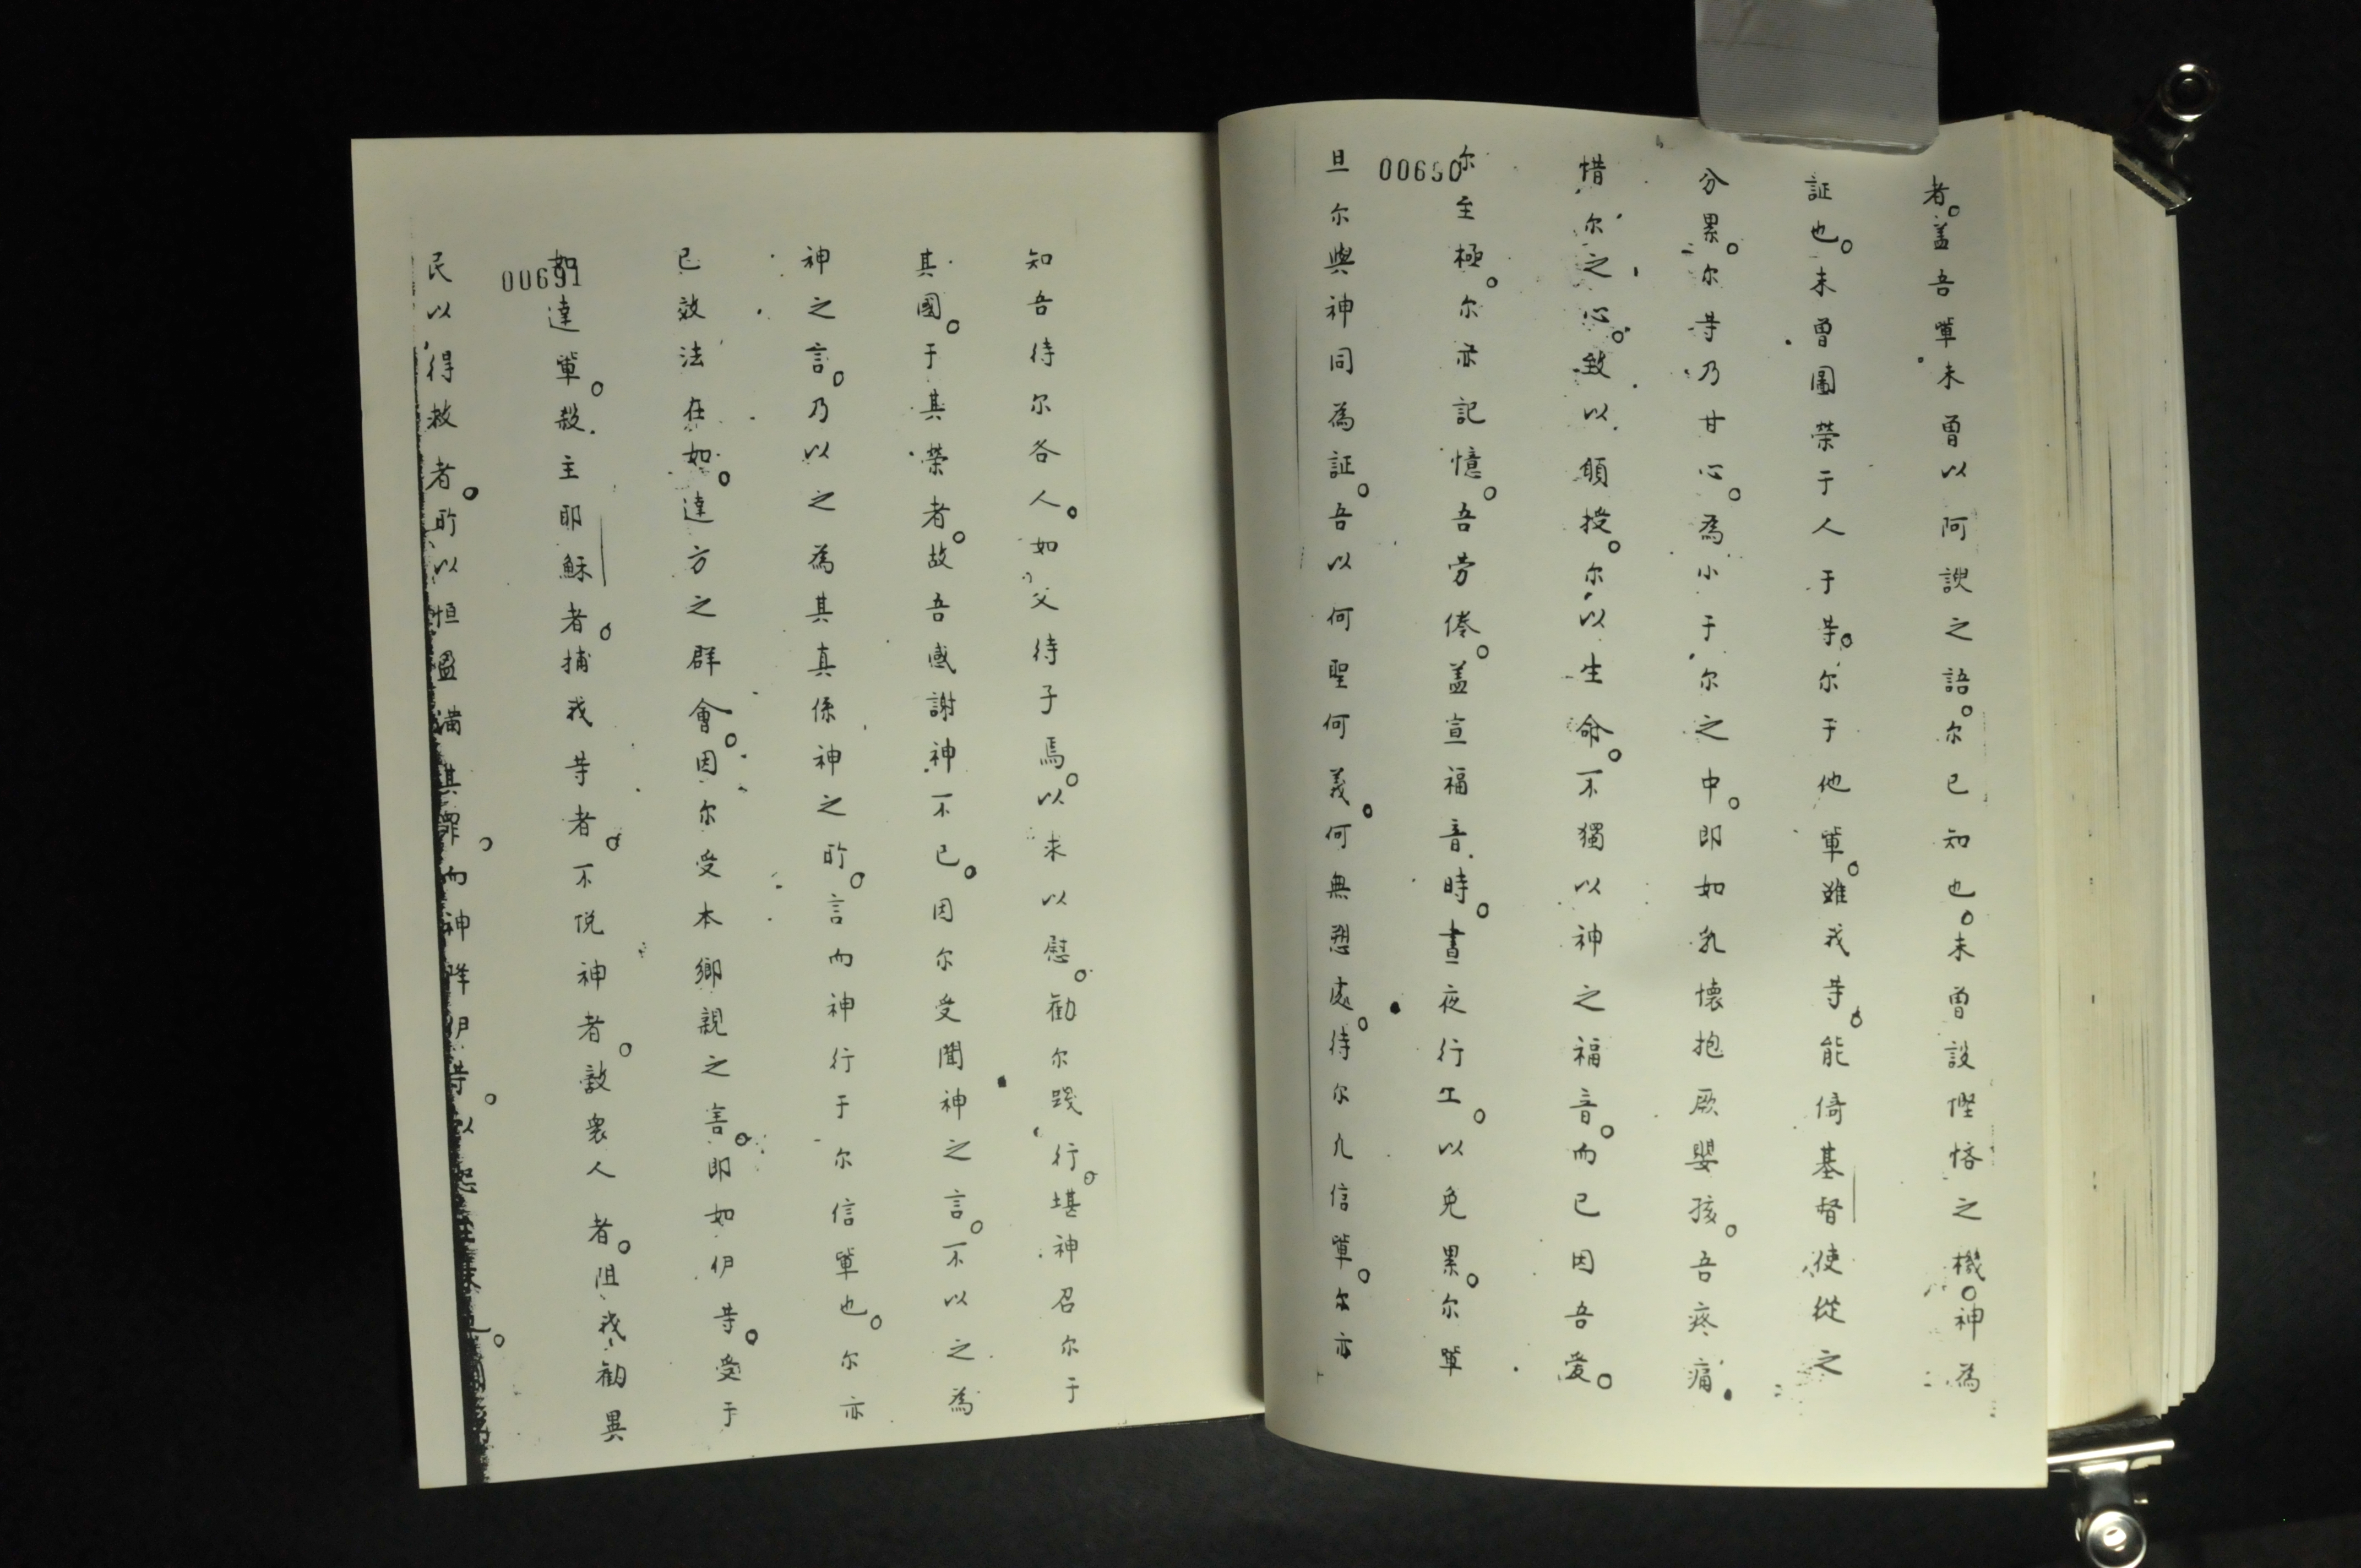 者。盖吾軰未曾以阿諛之語。尔已知也。未曾設慳悋之機。神為
証也。未曾圖荣于人于䓁。尔于他軰。雖我䓁。能倚基督使從之
分累。尔䓁乃甘心。為小于尔之中。即如乳懐抱厥嬰孩。吾疼痛
惜尔之心。致以頋授。尔以生命。不獨以神之福音。而已因吾爱。
尔至極。尔亦記憶。吾劳倦。盖宣福音時。晝夜行工。以免累。尔軰
00690
旦尔與神同為証。吾以何聖何義。何無愆處。待尔凢信軰。尔亦
知吾待尔各人。如父待子焉。以来以慰。勧尔踐行。堪神召尔于
其國。于其荣者。故吾感謝神不已。因尔受聞神之言。不以之為
神之言。乃以之為其真係神之所。言而神行于尔信軰也。尔亦
已效法在如。達方之群會。因尔受本鄉親之害。即如伊䓁。受于
如達軰。殺主耶穌者。捕我䓁者。不悦神者。敌衆人者。阻我勧異
00691
民以得救者。所以恒盈满其罪。而神降伊䓁。以